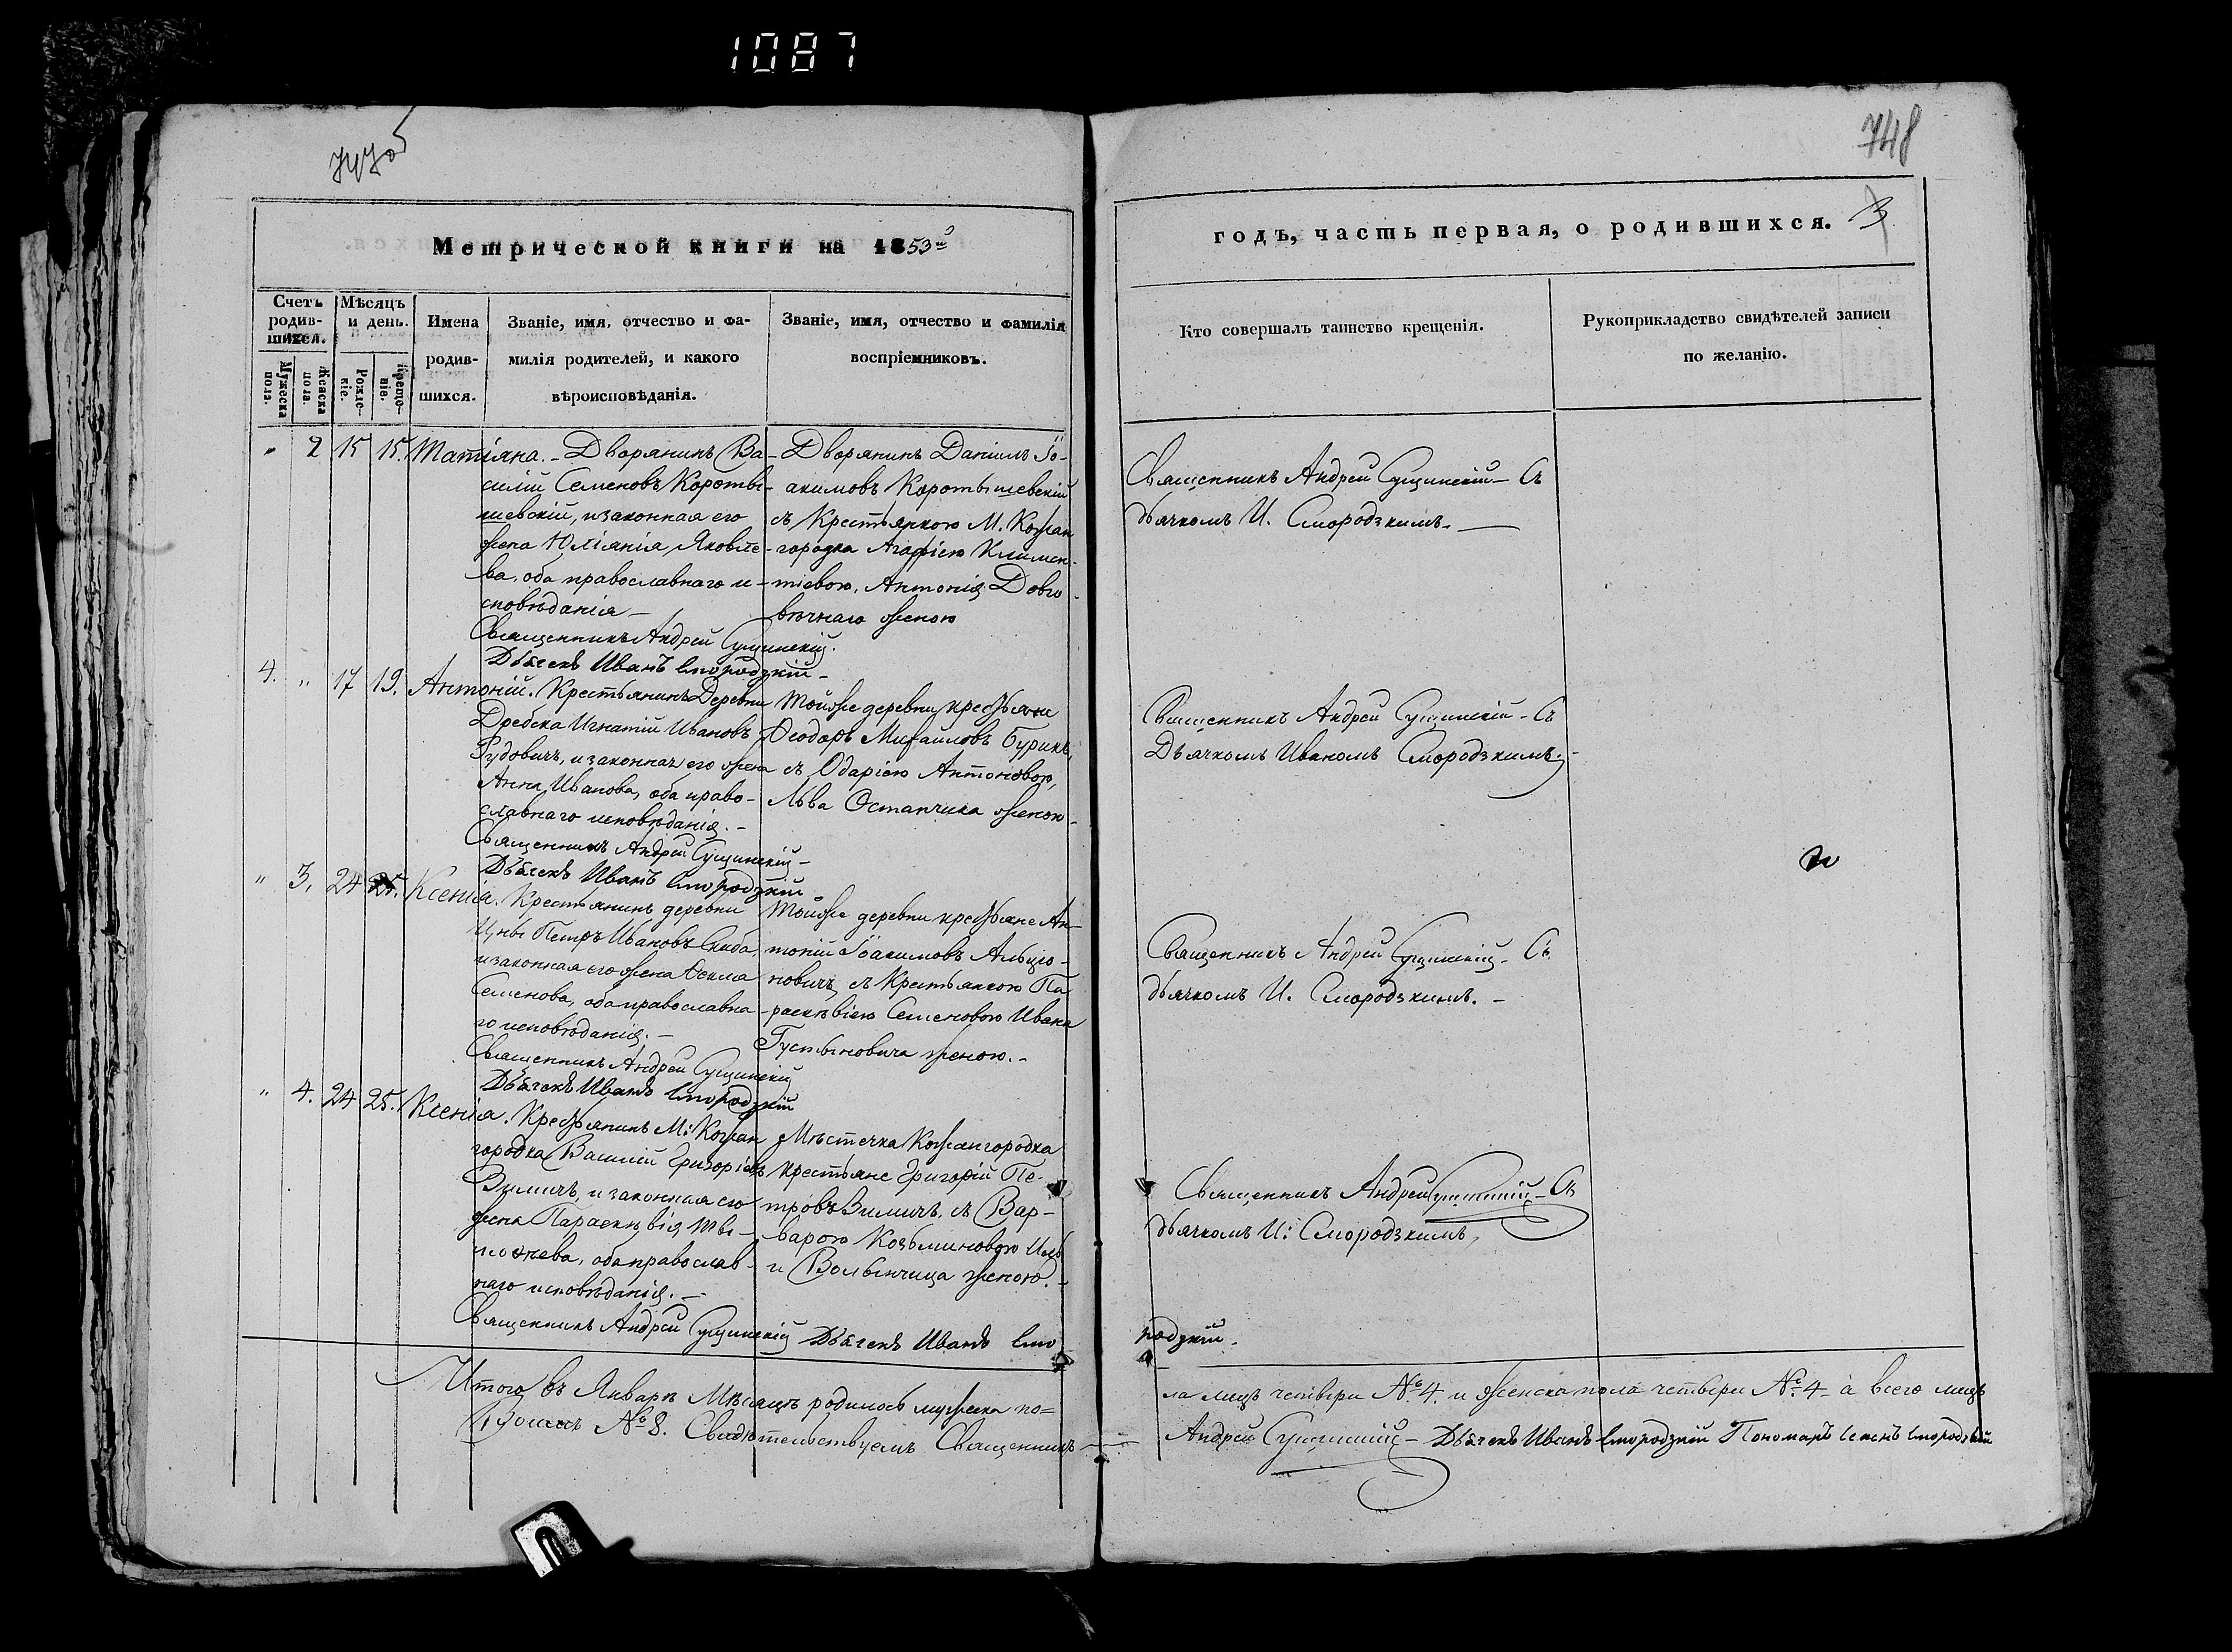 1087
747об
748
Метрической книги на 1853й
годъ, часть первая, о родившихся. 3
Счетъ родив-шихся.
Мужеска пола.
Женска пола.
Мѣсяцъ и день.
Рожде-ніе.
Крещо-ніе.
Имена родив-шихся.
Званіе, имя, отчество и фа-
милія родителей, и какого
вѣроисповѣданія.
Званіе, имя, отчество и фамилія
воспріемниковъ.
Кто совершалъ таинство крещенія.
Рукоприкладство свидѣтелей записи
по желанію.
" 2 15 15. Татіяна. - Дворянинъ Ва-
силій Семеновъ Короты-
шевскій, и законная его
жена Юліянія Яковле-
ва, оба православнаго и-
сповѣданія -
Священникъ Андрей Сущинскій.
Дьячекъ Иванъ Смородзкій -
Дворянинъ Даніилъ Іо-
акимовъ Коротышевскій
съ Крестьянкою М. Кожан
городка Агафіею Климен-
тіевою, Антонія Довго
вѣчнаго женою
Священникъ Андрей Сущинскій - Съ
дьячкомъ И. Смородзкимъ. -
4. " 17 19. Антоній. Крестьянинъ Деревни
Дребска Игнатій Ивановъ
Рудовичъ, и законная его жена
Анна Иванова, оба право-
славнаго исповѣданія. -
Священникъ Андрей Сущинскій -
Дьячекъ Иванъ Смородзкій -
Тойже деревни крестьяне
Ѳеодоръ Михаиловъ Бурикъ,
съ Одаріею Антоновою,
Льва Остапчика женою -
Священникъ Андрей Сущинскій - Съ
Дьячкомъ Иваномъ Смородзкимъ. -
" 3. 24 25. Ксенія. Крестьянинъ деревни
Цны Петръ Ивановъ Скиба,
и законная его жена Ѳекла
Семенова, оба православна
го исповѣданія. -
Священникъ Андрей Сущинскій
Дьячекъ Иванъ Смородзкій
Тойже деревни крестьяне Ан-
тоній Іоакимовъ
новичъ, съ Крестьянкою Па
раскевіею Семеновою Ивана
женою. -
Священникъ Андрей Сущинскій - Съ
дьячкомъ И. Смородзкимъ. -
" 4. 24 25. Ксенія. Крестьянинъ М: Кожан
городка Василій Григоріевъ
Вимичъ, и законная его
жена Параскевія
оба православ-
наго исповѣданія. -
Священникъ Андрей Сущинскій Дьячекъ Иванъ Смо
родзкій -
Мѣстечка Кожангородка
крестьяне Григорій Пе-
тровъ Вимичъ, съ Вар-
варою Козьминовою Иль
и Волынчица женою. -
Священникъ Андрей Сущинскій - Съ
дьячкомъ И: Смородзкимъ,
Итого въ Январѣ Мѣсяцѣ родилось мужеска по=
ла лицъ четверо №4. и женска пола четверо №4 - а всего лицъ
№8. Свидѣтельствуемъ Священникъ
Андрей Сущинскій - Дьячекъ Иванъ Смородзкій Пономарь Семенъ Смородзкій